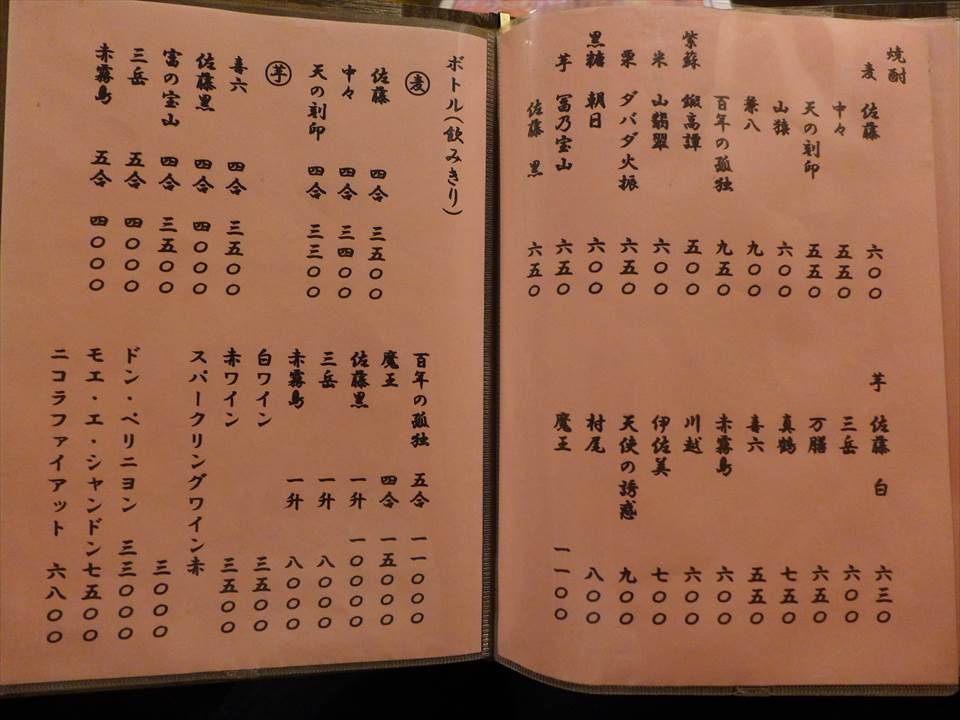 焼酎
麦 佐藤 六〇〇
中々 五五〇
天の刻印 五五〇
山猿 六〇〇
兼八 九〇〇
百年の孤独 九五〇
紫蘇 鍛高譚 五〇〇
米 山翡翠 六〇〇
栗 ダバダ火振 六五〇
黒糖 朝日 六〇〇
芋 冨乃宝山 六五〇
佐藤 黒 六五〇
芋 佐藤 白 六三〇
三岳 六〇〇
万膳 六五〇
真鶴 七五〇
喜六 五五〇
赤霧島 六〇〇
川越 六〇〇
伊佐美 七〇〇
天使の誘惑 九〇〇
村尾 八〇〇
魔王 一一〇〇
ボトル(飲みきり)
麦
佐藤 四合 三五〇〇
中々 四合 三四〇〇
天の刻印 四合 三三〇〇
芋
喜六 四合 三五〇〇
佐藤黒 四合 四〇〇〇
富の宝山 四合 三五〇〇
三岳 五合 四〇〇〇
赤霧島 五合 四〇〇〇
百年の孤独 五合 一一〇〇〇
魔王 四合 一五〇〇〇
佐藤黒 一升 一〇〇〇〇
三岳 一升 八〇〇〇
赤霧島 一升 八〇〇〇
白ワイン 三五〇〇
赤ワイン 三五〇〇
スパークリングワイン赤
三〇〇〇
ドン・ペリニヨン 三三〇〇〇
モエ・エ・シャンドン七五〇〇
ニコラファイアット 六八〇〇